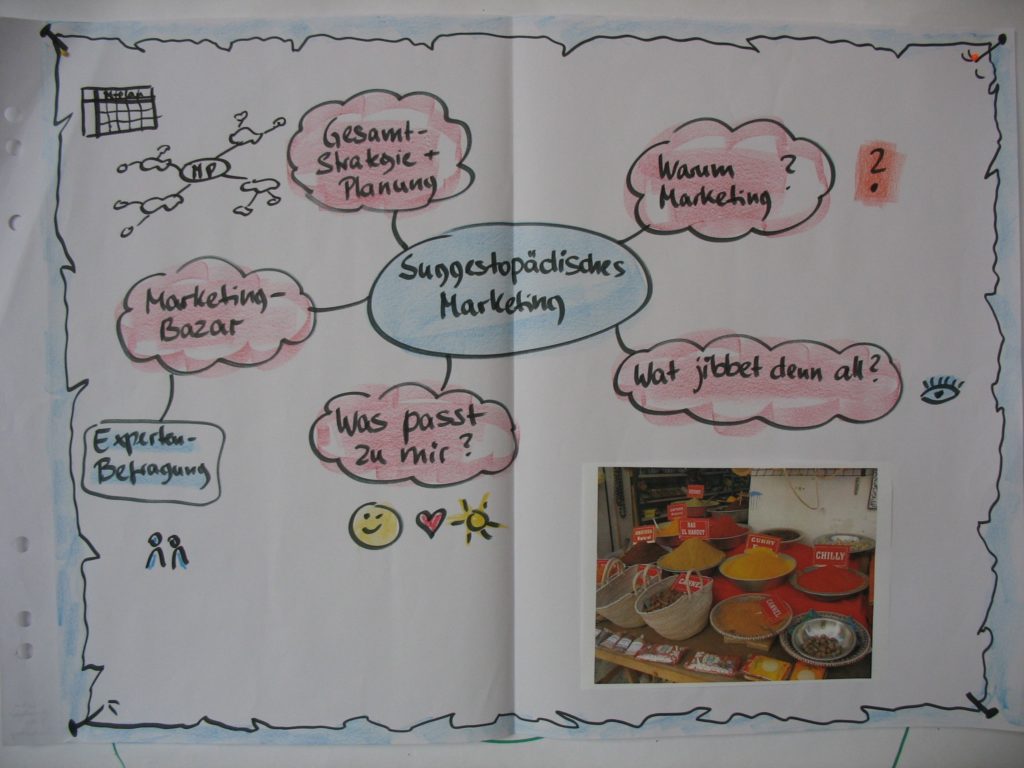 Gesamt-
Strategie +
Planung
MP
Warum
Marketing ?
?
Suggestopädisches
Marketing
Marketing-
Bazar
Wat jibbet denn all?
Experten-
Befragung
Was passt
zu mir?
RAS
EL HANOUT
CURRY
CHILLY